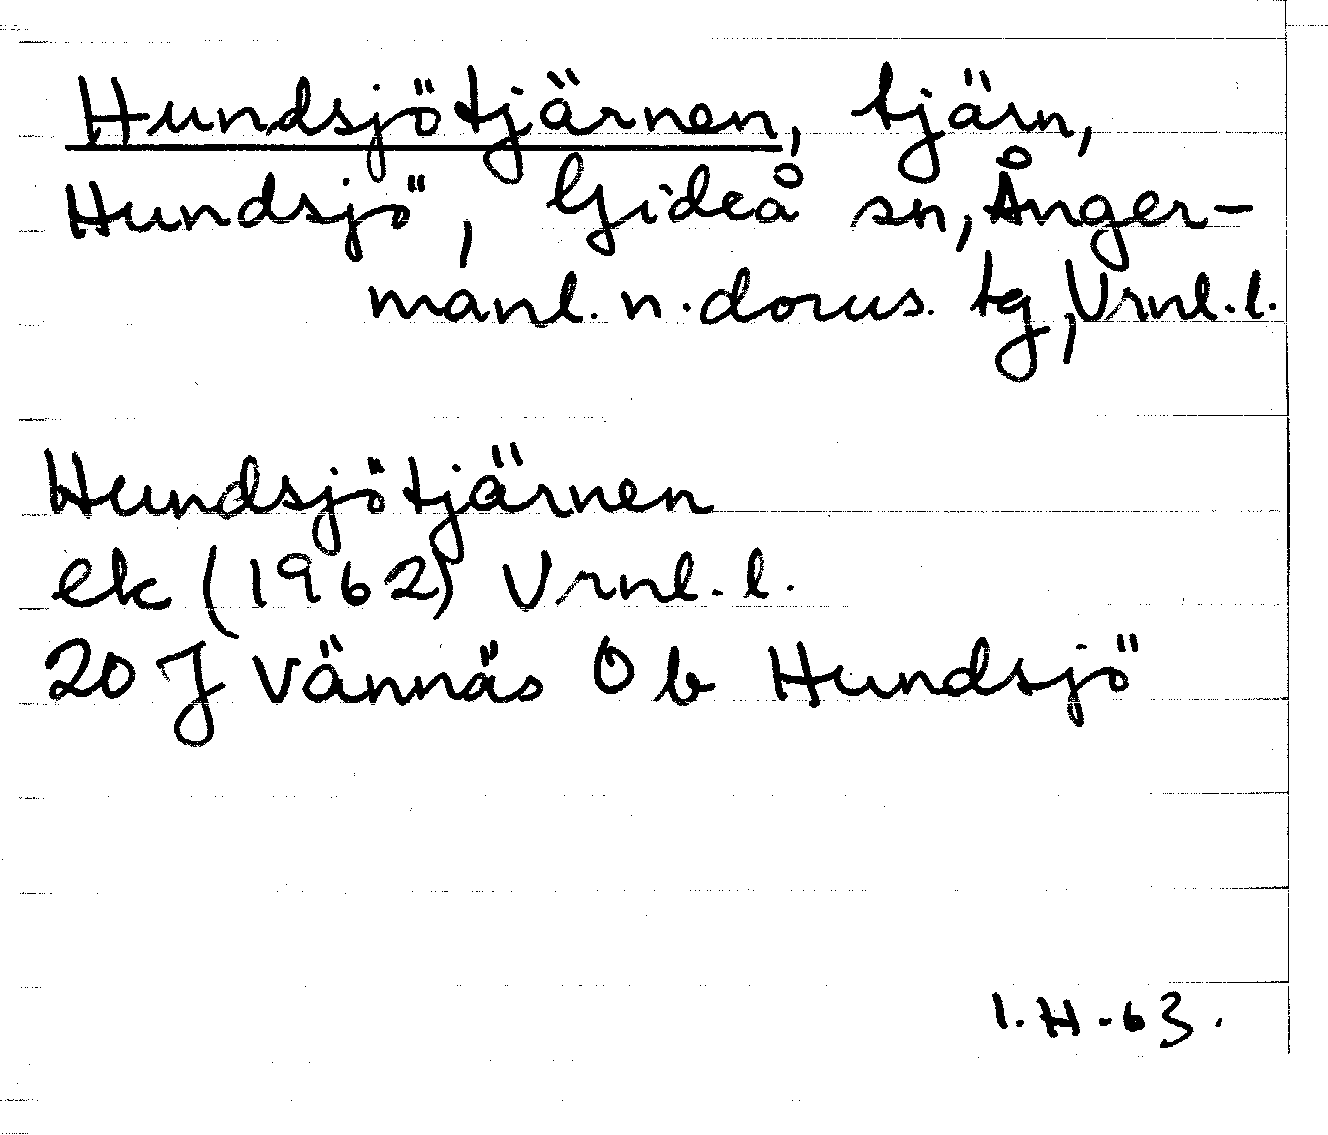 Hundsjötjärnen, tjärn,
Hundsjö, Gideå sn, Ånger-
manl. n. doms. tg, Vrnl. l.
Hundsjötjärnen
ek (1962) Vrnl. l.
20 J Vännäs Ob Hundsjö
I. H -63.